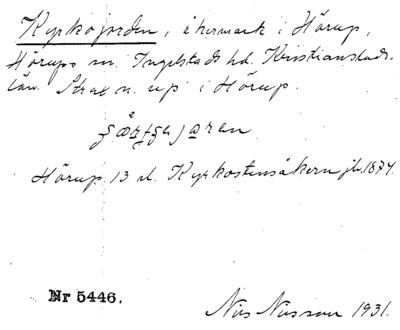 Kyrkojorden, åkermark i Hörup,
Hörups sn. Ingelstads hd. Kristianstads
län. Strax n. up i Hörup.
Hörup 13 al. Kyrkostensåkern jb. 1874.
Nr 5446.
Nils Nilsson 1931.